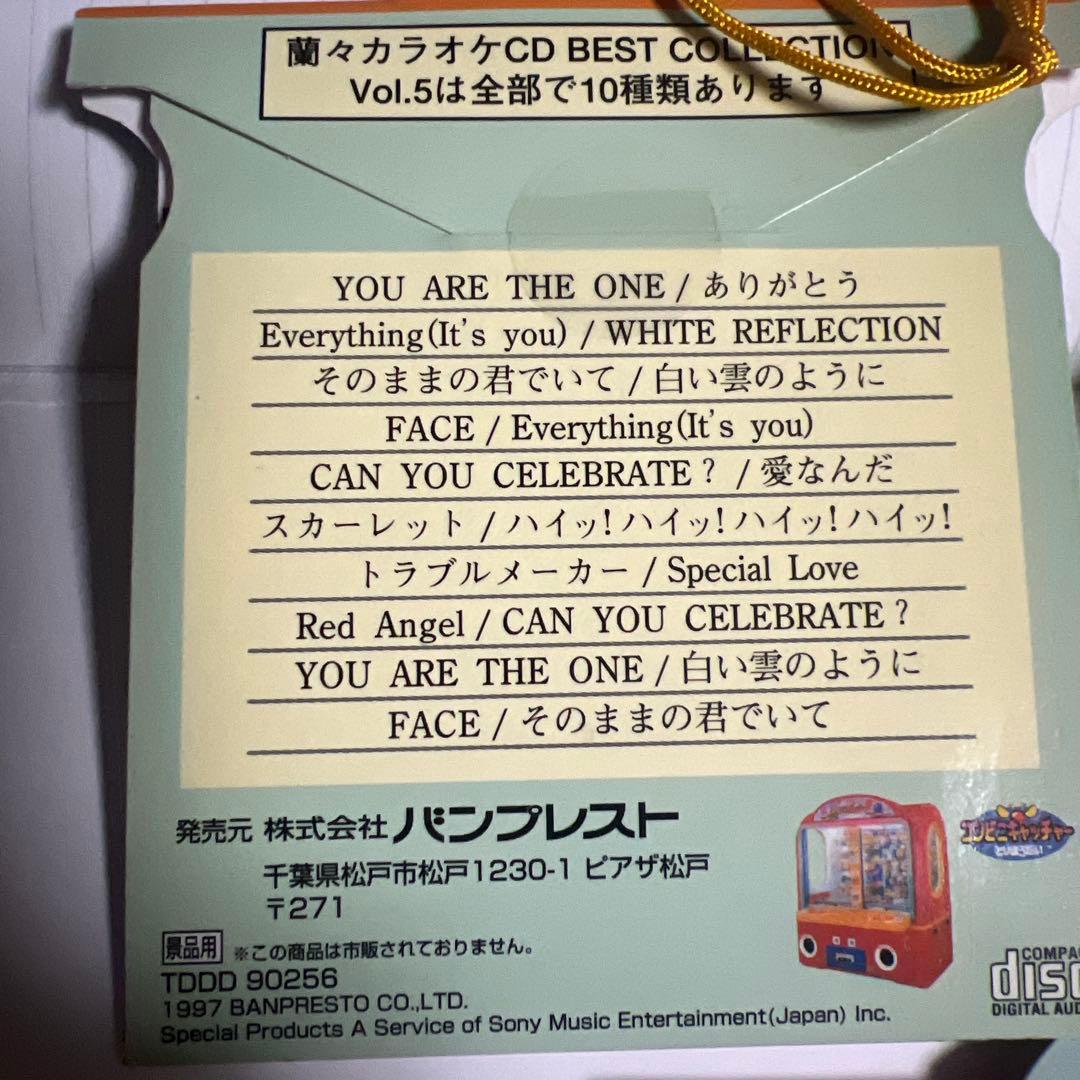 蘭々カラオケCD BEST COLLECTION
Vol.5は全部で10種類あります
YOU ARE THE ONE / ありがとう
Everything(It's you) / WHITE REFLECTION
そのままの君でいて / 白い雲のように
FACE / Everything(It's you)
CAN YOU CELEBRATE? / 愛なんだ
スカーレット / ハイッ!ハイッ!ハイッ!ハイッ!
トラブルメーカー / Special Love
Red Angel / CAN YOU CELEBRATE?
YOU ARE THE ONE / 白い雲のように
FACE / そのままの君でいて
発売元 株式会社 バンプレスト
千葉県松戸市松戸1230-1 ピアザ松戸
〒271
コンビニキャッチャー
景品用 ※この商品は市販されておりません。
TDDD 90256
1997 BANPRESTO CO.,LTD.
Special Products A Service of Sony Music Entertainment(Japan) Inc.
COMPA
disc
DIGITAL AUD